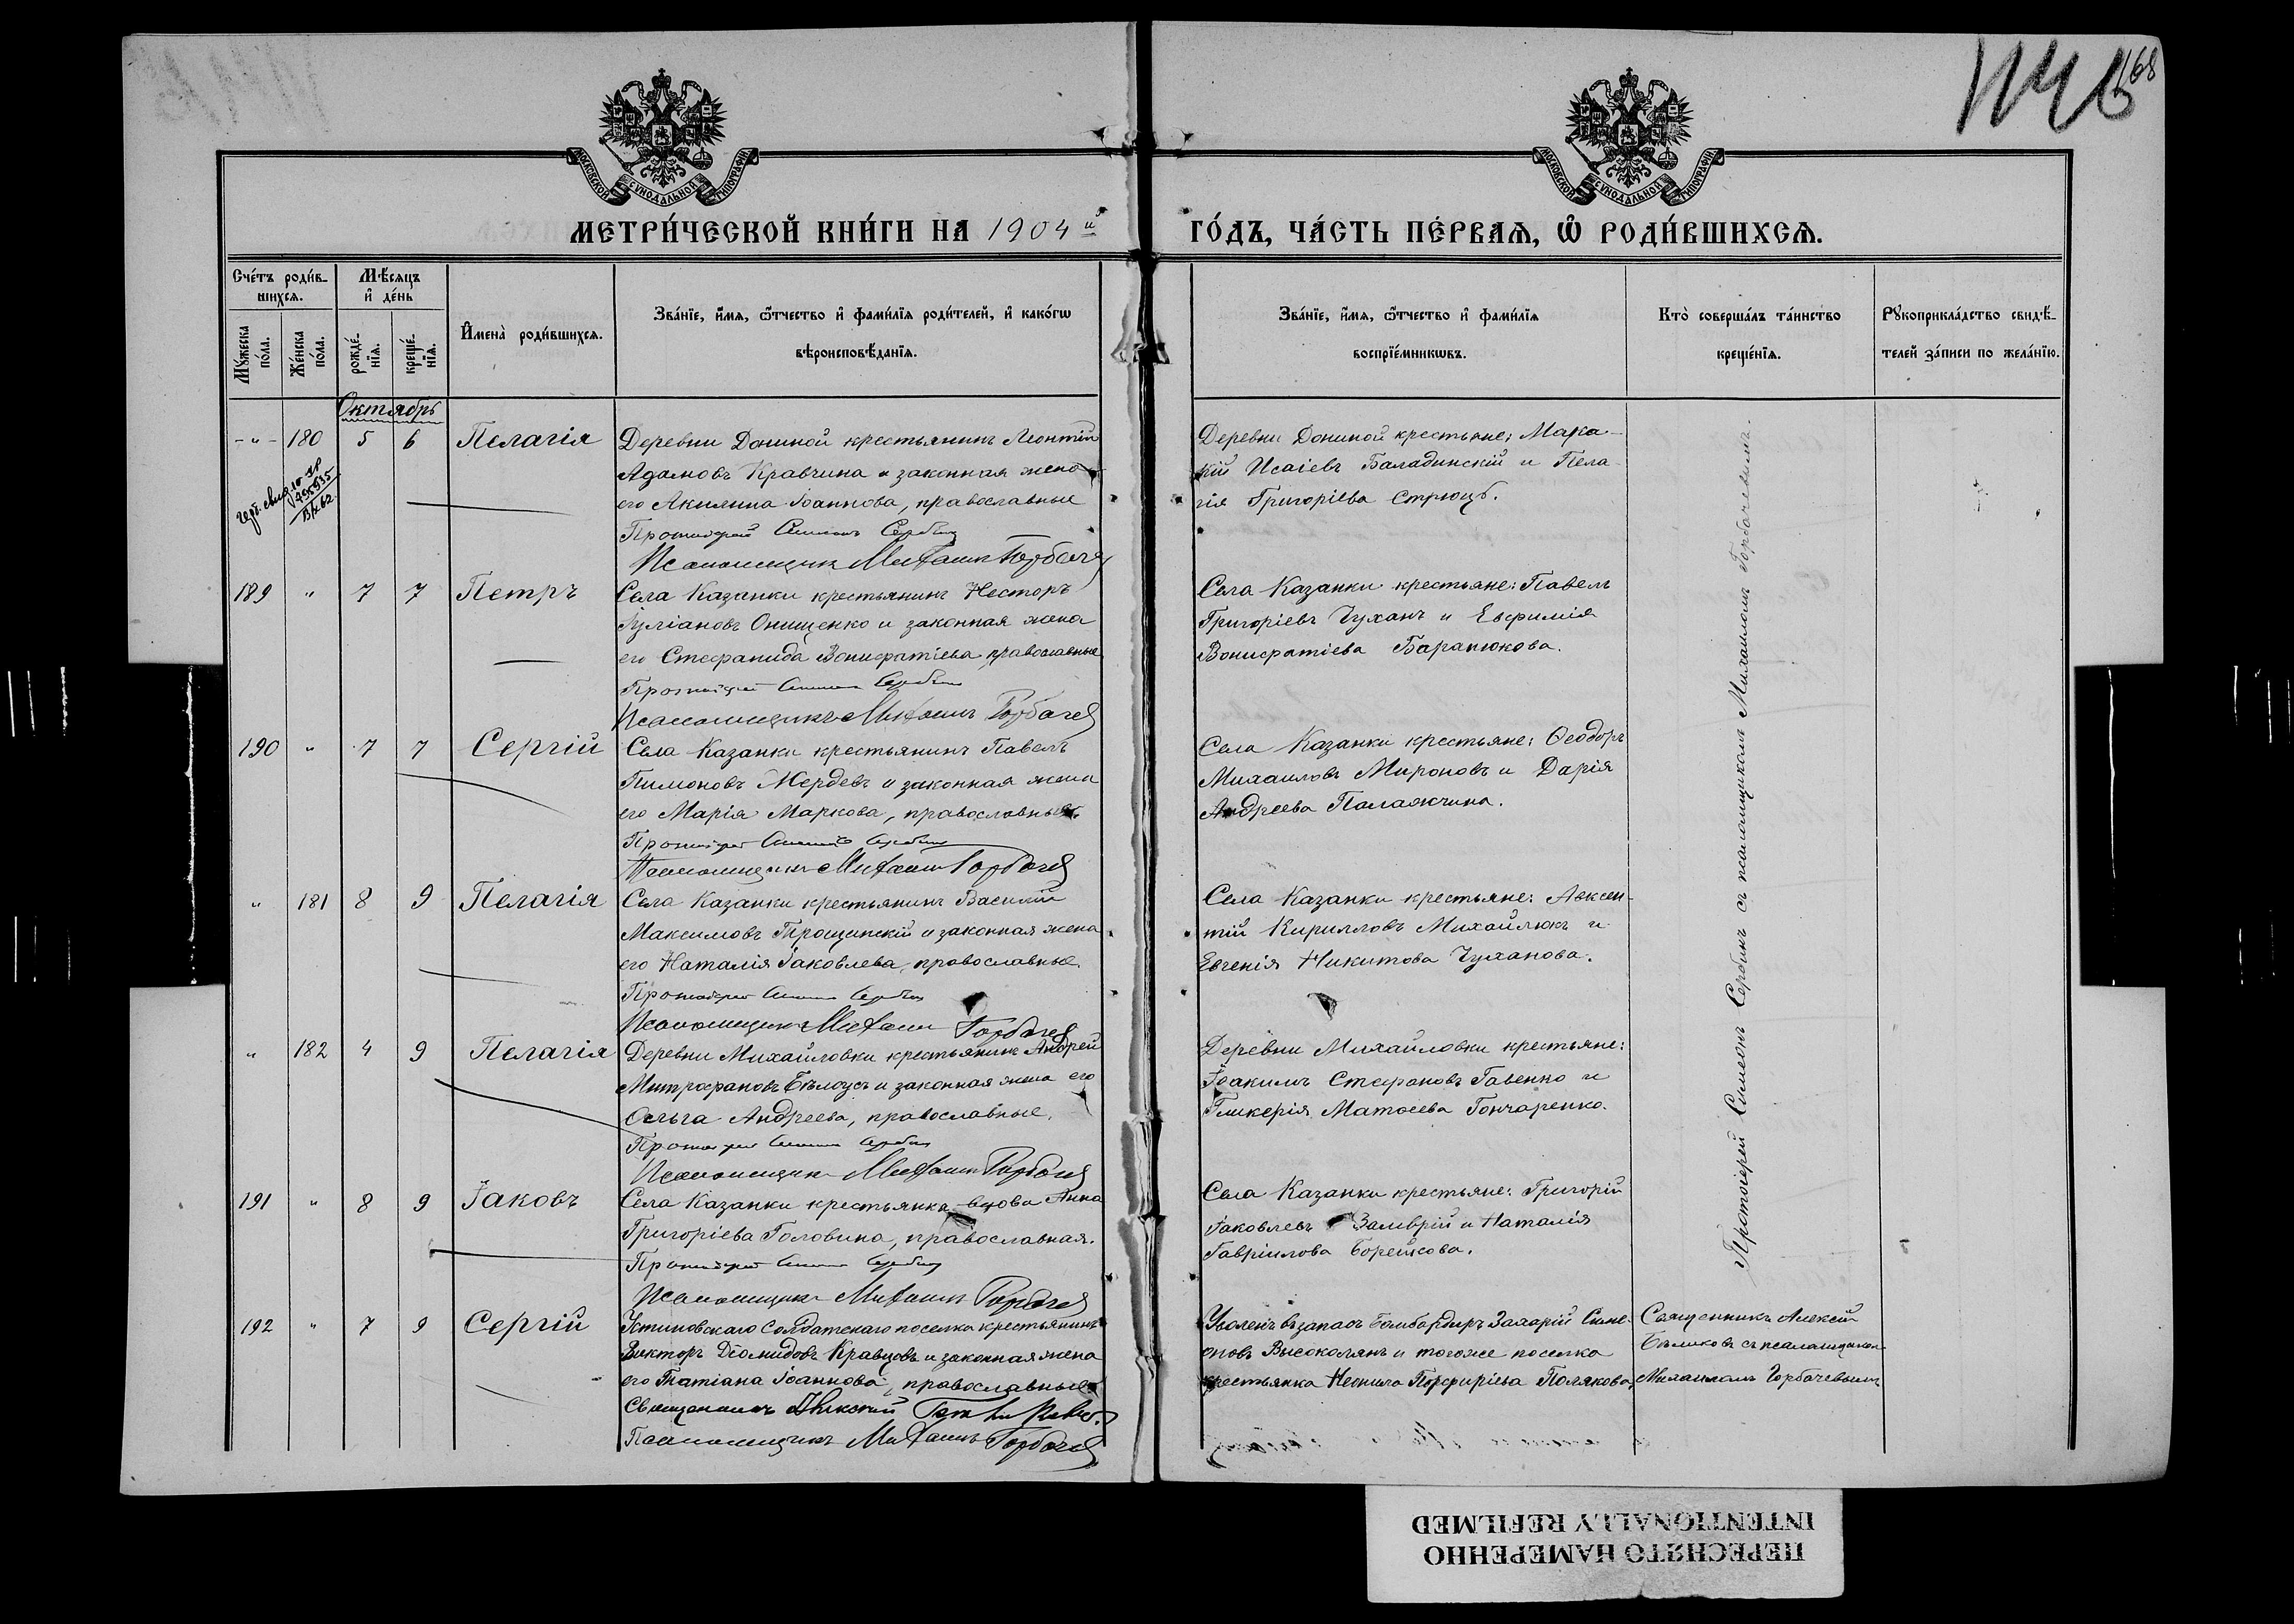 168
МОСКОВСКОЙ СУНОДАЛЬНОЙ ТИПОГРАФІИ
МОСКОВСКОЙ СУНОДАЛЬНОЙ ТИПОГРАФІИ
МЕТРИ́ЧЕСКОЙ КНИ́ГИ НА 1904 й
ГО́ДЪ, ЧА́СТЬ ПЕ́РВАѦ, Ѡ҆ РОДИ́ВШИХСѦ.
Сче́тъ роди́в-
шихсѧ.
Му́жеска по́ла.
Же́нска по́ла.
Мѣ́сѧцъ
и҆ де́нь
рожде́-
нїѧ.
креще́-
нїѧ.
И҆мена̀ роди́вшихсѧ.
Зва́нїе, и҆́мѧ, ѻ҆́тчество и҆ фами́лїѧ роди́телей, и҆ како́гѡ
вѣроисповѣ́данїѧ.
Зва́нїе, и҆́мѧ, ѻ҆́тчество и҆ фами́лїѧ
воспрїе́мникѡвъ.
Кто̀ соверша́лъ та́инство
креще́нїѧ.
Рꙋкоприкла́дство свидѣ́-
телей за́писи по жела́нїю.
Октябрь
- " - 180 5 6 Пелагія
Деревни Дониной крестьянинъ Леонтій
Адамовъ Кравчина и законная жена
его Акилина Іоаннова, православные
Протоіерей Симеонъ Сербинъ
Псаломщикъ Михаилъ Горбачев
Деревни Дониной крестьяне: Мака-
кій Исаіевъ Баладинскій и Пела-
гія Григоріева Стрюцъ.
189 " 7 7 Петръ
Села Казанки крестьянинъ Несторъ
Іуліановъ Онищенко и законная жена
его Стефанида Вонифатіева, православные
Протоіерей Симеонъ Сербинъ
Псаломщикъ Михаилъ Горбачев
Села Казанки крестьяне: Павелъ
Григоріевъ Чуханъ и Евфимія
Вонифатіева Баранюкова.
190 " 7 7 Сергій
Села Казанки крестьянинъ Павелъ
Пимоновъ Мердевъ и законная жена
его Марія Маркова, православные
Протоіерей Симеонъ Сербинъ
Псаломщикъ Михаилъ Горбачев
Села Казанки крестьяне: Ѳеодоръ
Михаиловъ Мироновъ и Дарія
Андреева Паламжчина.
" 181 8 9 Пелагія
Села Казанки крестьянинъ Василій
Максимовъ Трощинскій и законная жена
его Наталія Іаковлева, православные.
Протоіерей Симеонъ Сербинъ
Псаломщикъ Михаилъ Горбачев
Села Казанки крестьяне: Авксен-
тій Кирилловъ Михайлюкъ и
Евгенія Никитова Чуханова.
" 182 4 9 Пелагія
Деревни Михайловки крестьянинъ Андрей
Митрофановъ Бѣлоусъ и законная жена его
Ольга Андреева, православные.
Протоіерей Симеонъ Сербинъ
Псаломщикъ Михаилъ Горбачев
Деревни Михайловки крестьяне:
Іоакимъ Стефановъ Гавенко и
Гликерія Матѳеева Гончаренко.
191 " 8 9 Іаковъ
Села Казанки крестьянка вдова Анна
Григоріева Головина, православная.
Протоіерей Симеонъ Сербинъ
Псаломщикъ Михаилъ Горбачев
Села Казанки крестьяне: Григорій
Іаковлевъ Замврій и Наталія
Гавріилова Борейкова.
Протоіерей Симеонъ Сербинъ съ псаломщикомъ Михаиломъ Горбачевымъ.
192 " 7 9 Сергій
Устиновскаго Солдатскаго поселка крестьянинъ
Викторъ Діомидовъ Кравцовъ и законная жена
его Татіана Іоаннова, православные
Священникъ Алексій
Псаломщикъ Михаилъ Горбачев
Уволенъ въ запасъ бомбардиръ Захарій Симе-
оновъ Высоколянъ и тогоже поселка
крестьянка Неонила Порфиріева Полякова.
Священникъ Алексій
Бѣликовъ съ псаломщикомъ
Михаиломъ Горбачевымъ
ПЕРЕСНЯТО НАМЕРЕННО
INTENTIONALLY REFILMED